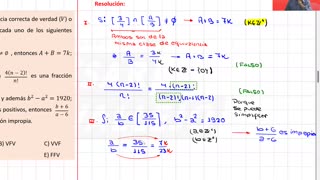 cia correcta de verdad (V) o
cada uno de los siguientes
≠ ∅ , entonces A + B = 7k;
4(n−2)!
n!
es una fracción
y además b² − a² = 1920;
positivos, entonces b+6
a−6
ón impropia.
VFV
C) VVF
E) FFV
Resolución:
I. Si: [3/4] ∩ [A/B] ≠ ∅ → A+B = 7k (K∈Z⁺)
Ambos son de la
misma clase de equivalencia
* A/B = 3k/4k → A+B = 7k
(K∈Z - {0}) (FALSO)
II. 4(n-2)!/n! = 4(n-2)!/(n-2)!(n-1)(n) (FALSO)
Porque
se puede
simplificar
III. Si: a/b ∈ [35/115], b²-a² = 1920
a/b = 35/115 = 7k/23k (a∈Z⁺) (b∈Z⁺) → b+6/a-6 es impropia